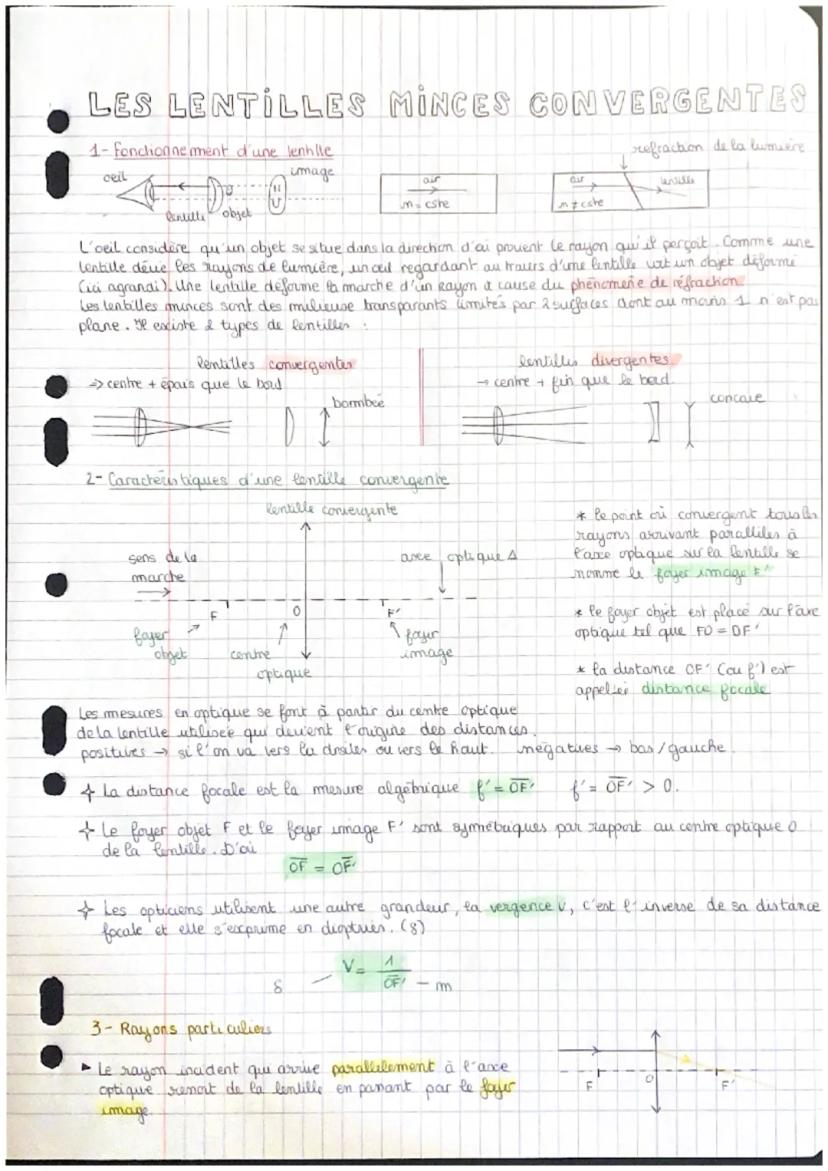 LES LENTILLES MINCES CONVERGENTES
1- Fonctionnement d'une lentille
refraction de la lumière
oeil
image
lentille
objet
air
n = cste
air
lentille
n ≠ cste
L'oeil considère qu'un objet se situe dans la direction d'où provient le rayon qu'il perçoit. Comme une
lentille dévie les rayons de lumière, un oeil regardant au travers d'une lentille voit un objet déformé
(ici agrandi). Une lentille déforme la marche d'un rayon à cause du phénomène de réfraction.
Les lentilles minces sont des milieux transparants limités par 2 surfaces dont au moins 1 n'est pas
plane. Il existe 2 types de lentilles :
lentilles convergentes
=> centre + épais que le bord
bombée
lentilles divergentes
→ centre + fin que le bord
concave
2- Caractéristiques d'une lentille convergente
lentille convergente
sens de la
marche
axe optique Δ
F
O
F'
foyer
objet
centre
optique
foyer
image
* le point où convergent tous les
rayons arrivant parallèles à
l'axe optique sur la lentille se
nomme le foyer image F'
* le foyer objet est placé sur l'axe
optique tel que FO = OF'
* la distance OF' (ou f') est
appelée distance focale
Les mesures en optique se font à partir du centre optique
de la lentille utilisée qui devient l'origine des distances.
positives → si l'on va vers la droite ou vers le haut. négatives → bas/gauche.
+ La distance focale est la mesure algébrique f' = OF' f' = OF' > 0.
+ Le foyer objet F et le foyer image F' sont symétriques par rapport au centre optique O
de la lentille. D'où
OF = OF'
+ Les opticiens utilisent une autre grandeur, la vergence V, c'est l'inverse de sa distance
focale et elle s'exprime en dioptries. (δ)
δ
V = 1
OF' - m
3- Rayons particuliers
▸ Le rayon incident qui arrive parallèlement à l'axe
optique ressort de la lentille en passant par le foyer
image.
F
O
F'